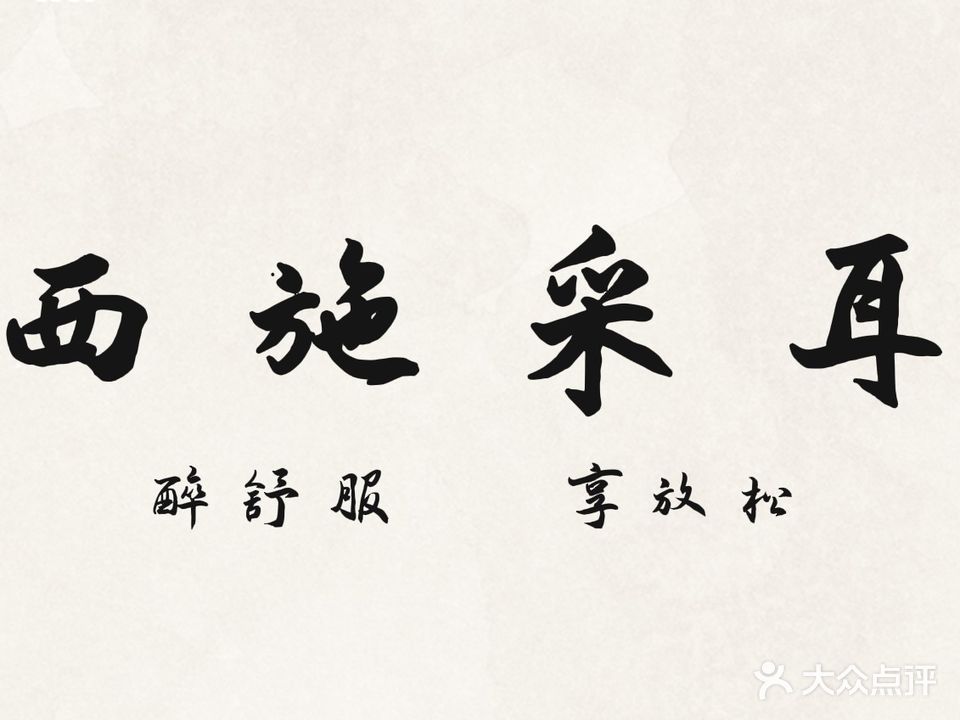 西施采耳
醉舒服 享放松
大众点评